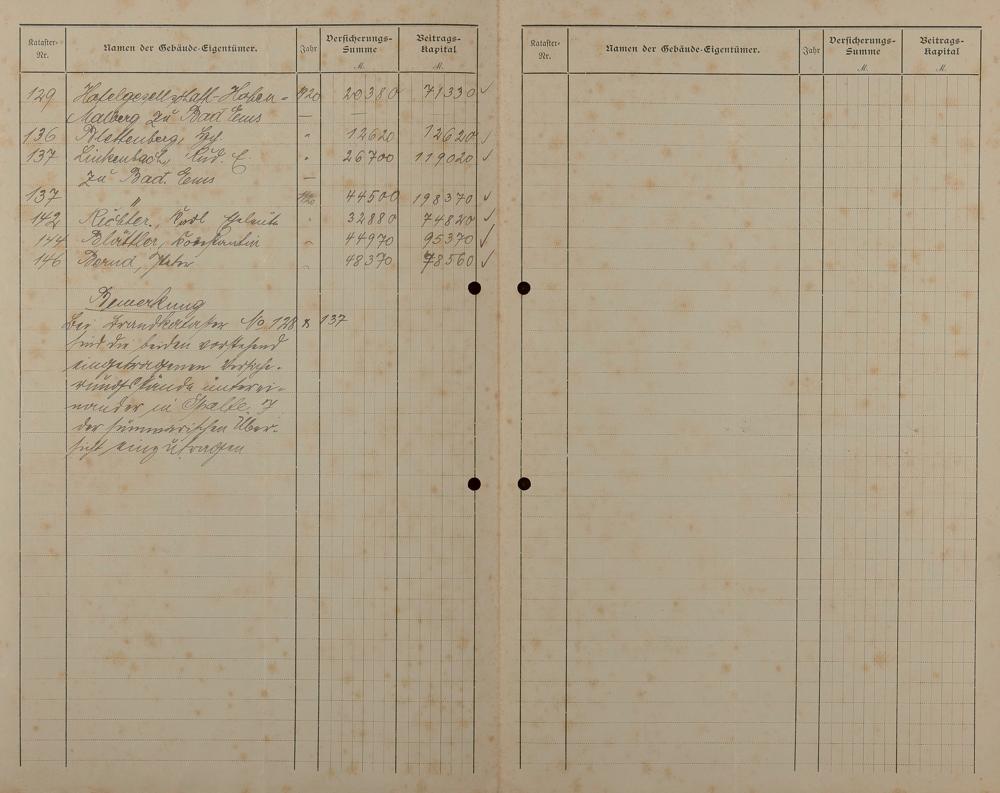 Kataster-Nr. Namen der Gebäude-Eigentümer. Jahr Versicherungs-Summe M. Beitrags-Kapital M.
129 Hotelgesellschaft Hohen- 1920 20380 71330 ✓
Malberg zu Bad Ems — —
136 Plettenberg, " 12620 12620 ✓
137 Linkenbach, Rud. C. " 26700 119020 ✓
zu Bad. Ems —
137 " 1920 44500 198370 ✓
142 Richter, Karl Eheleute " 32880 74820 ✓
144 Blättler, Konstantin " 44970 95370 ✓
146 Bernd, " 48370 78560 ✓
Bemerkung
Bei Brandkataster No 128 & 137
sind die beiden vorstehend
eingetragenen Versiche-
rungsstände unterei-
nander in Spalte 7
der summarischen Über-
sicht einzutragen
Kataster-Nr. Namen der Gebäude-Eigentümer. Jahr Versicherungs-Summe M. Beitrags-Kapital M.